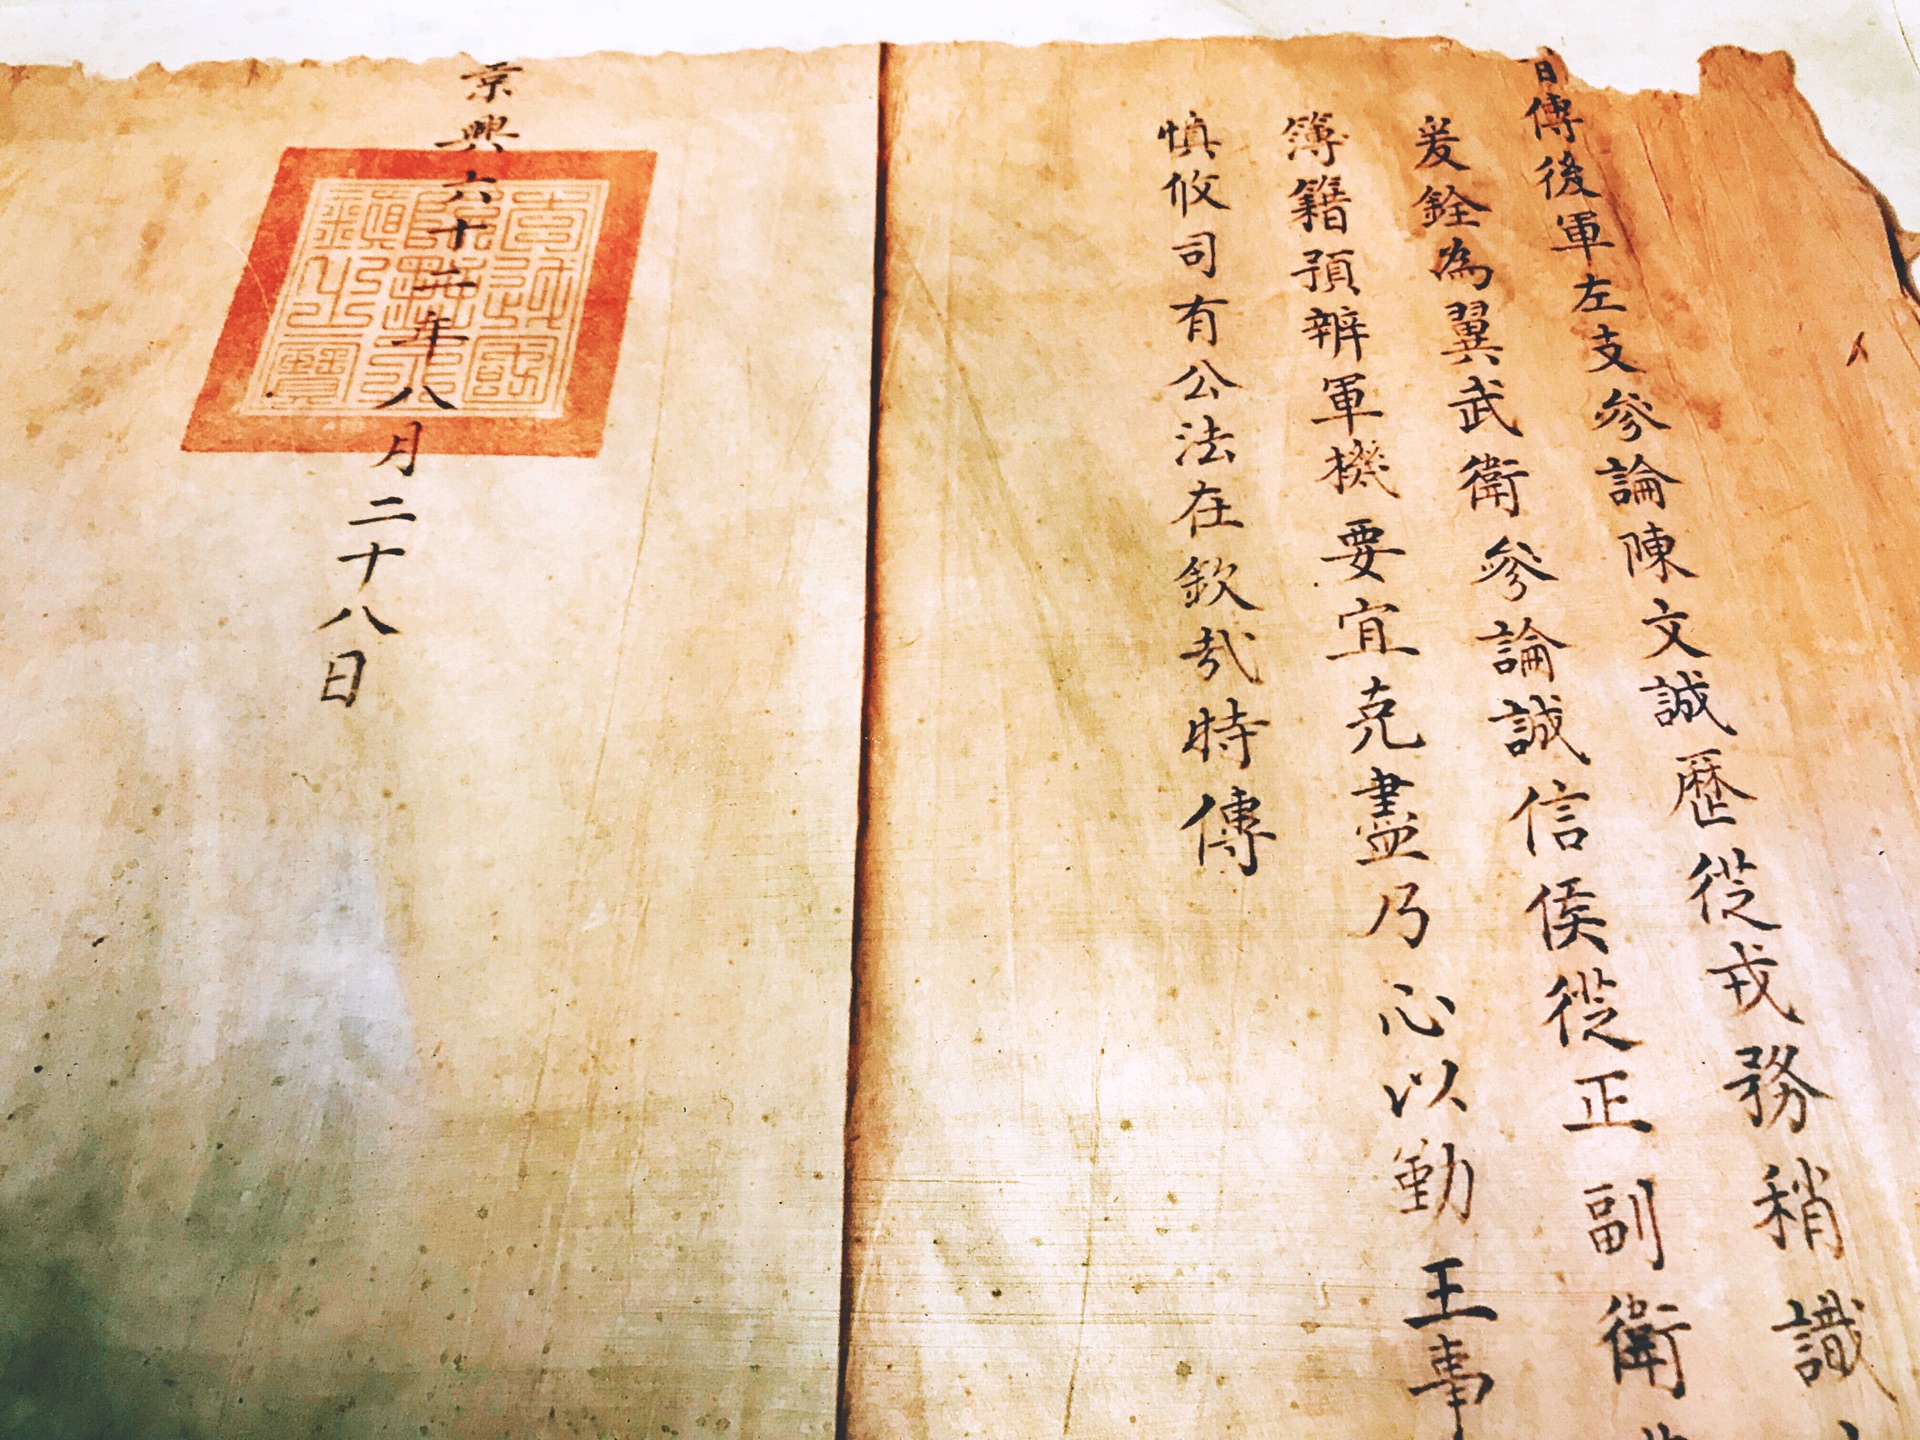 傳後軍左支參論陳文誠歷從戎務稍識
爰銓為翼武衛參論誠信侯從正副衛
簿籍預辨軍機要宜克盡乃心以勤王事
慎攸司有公法在欽哉時傳
景興六十二年八月二十八日
大越國阮主永鎮之寶